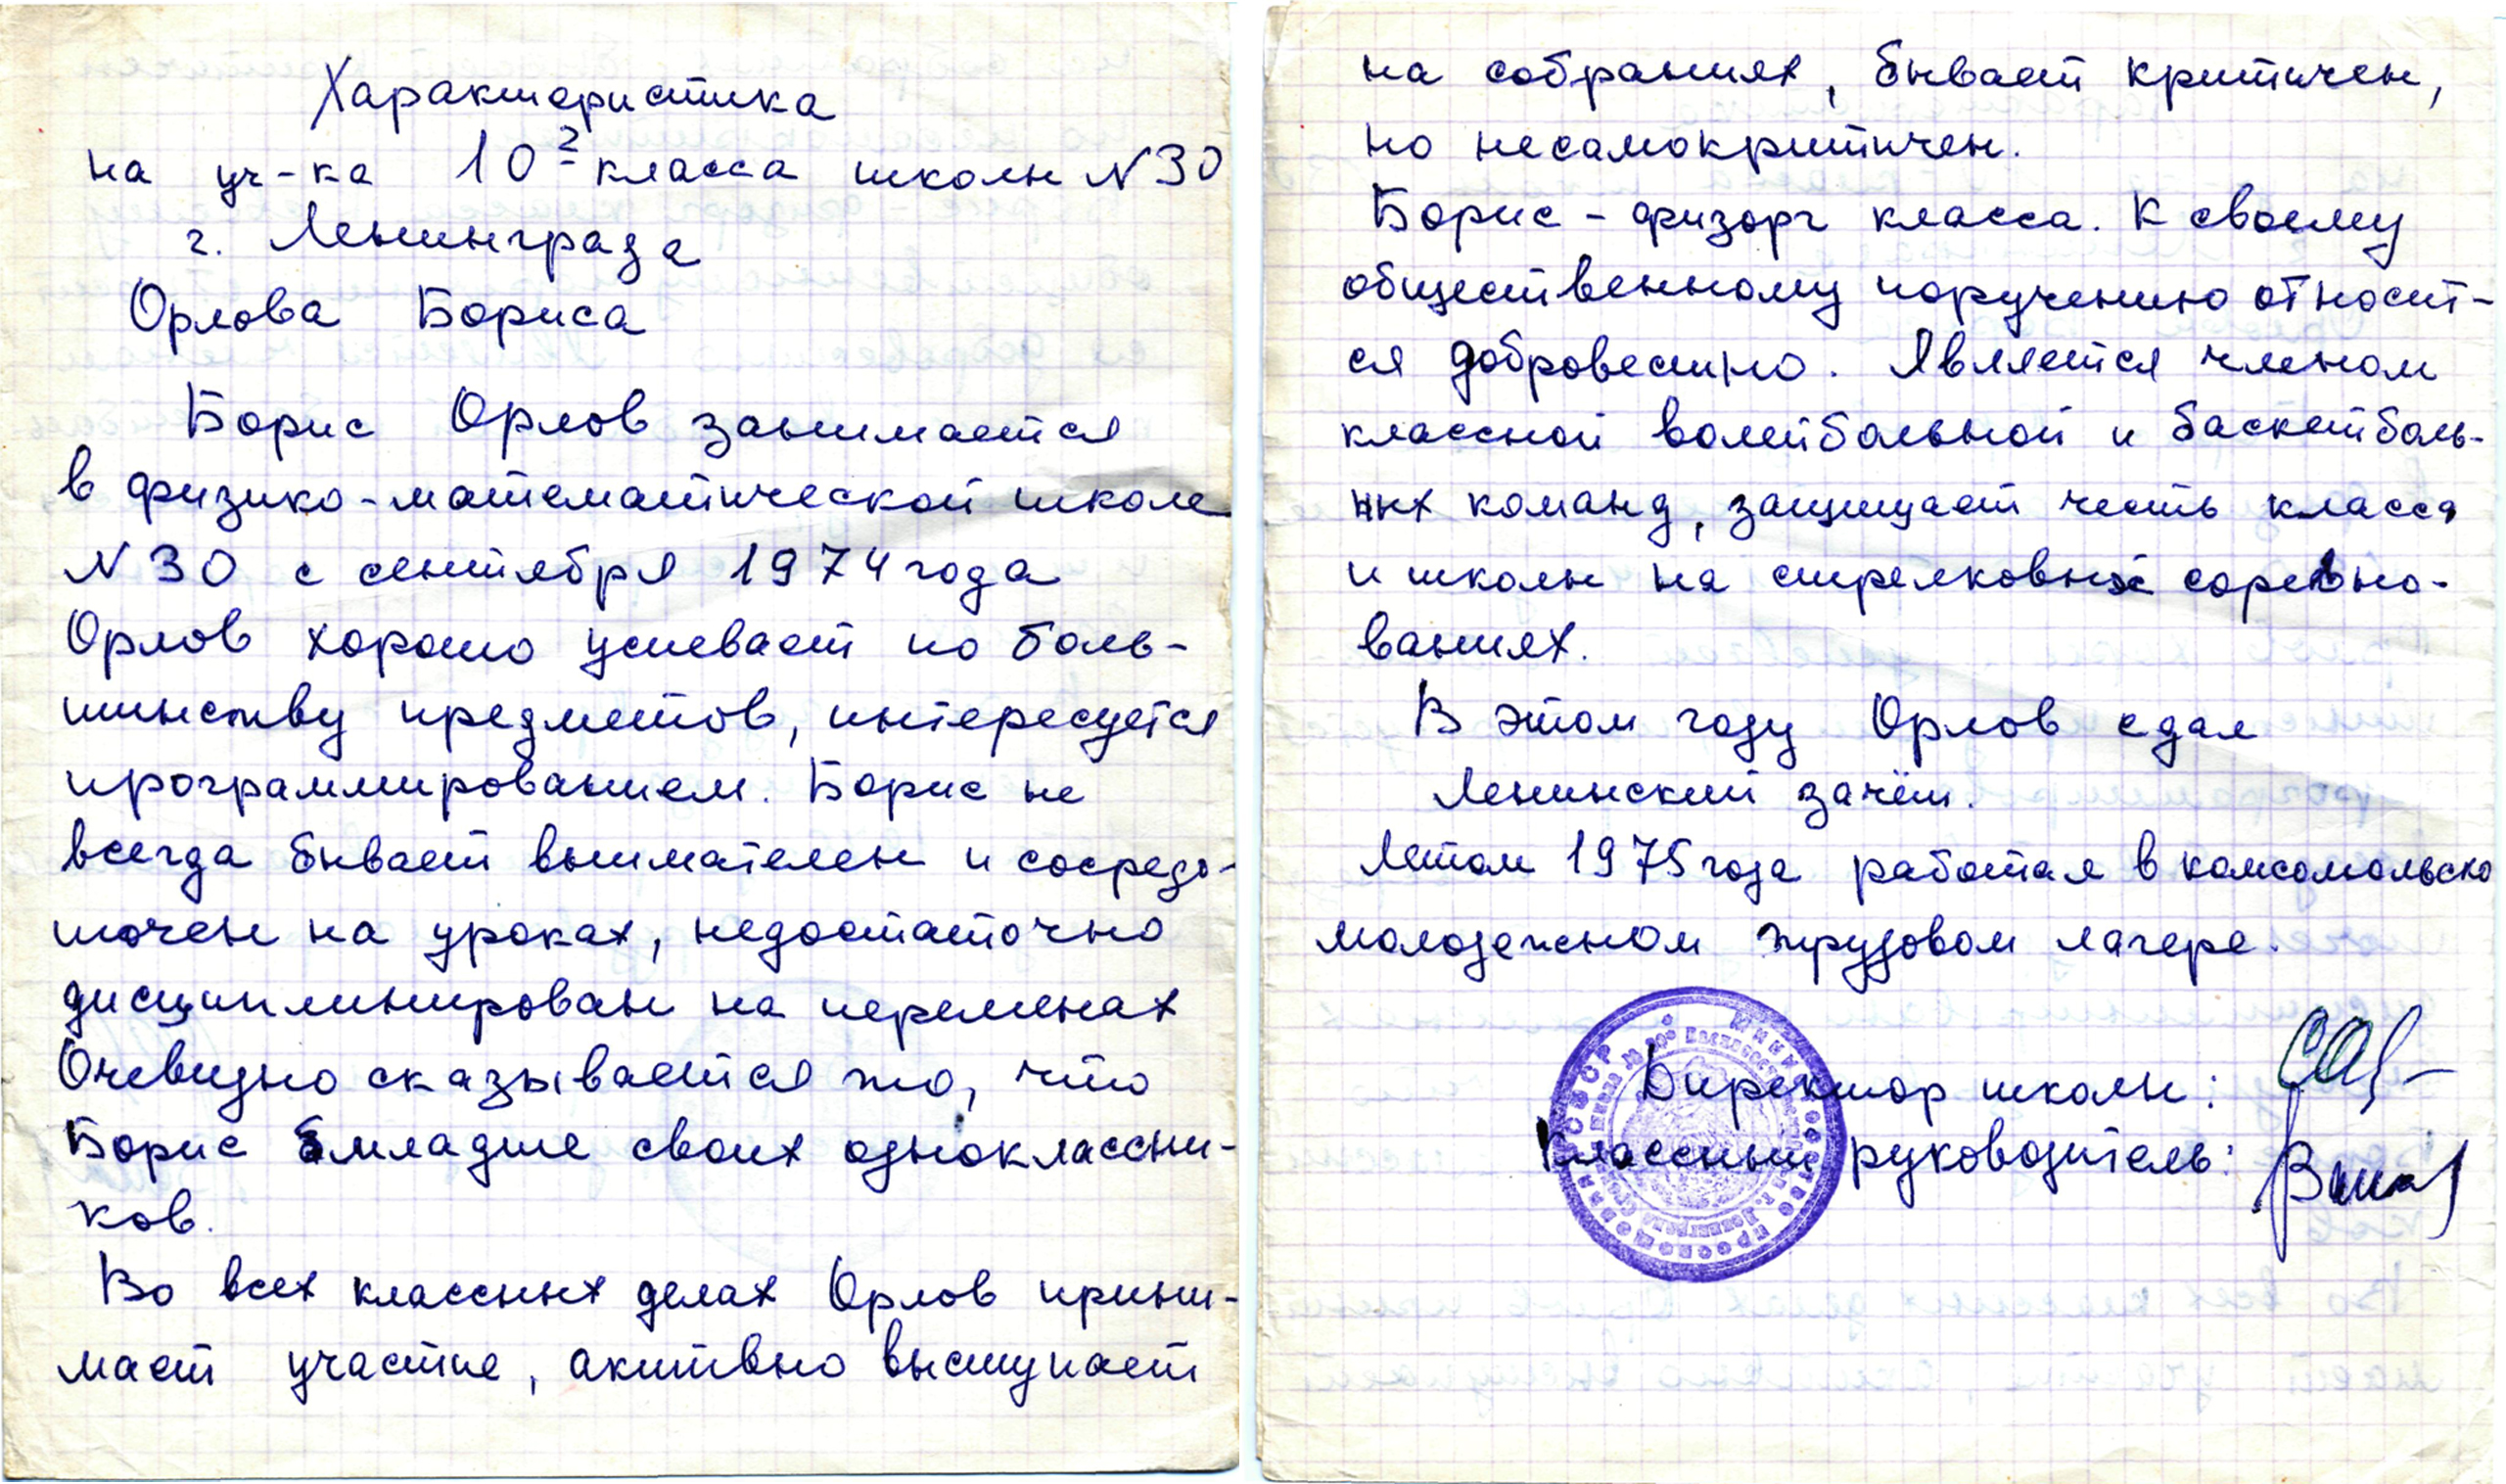 Характеристика
на уч-ка 10² класса школы N 30
г. Ленинграда
Орлова Бориса
Борис Орлов занимается
в физико-математической школе
N 30 с сентября 1974 года
Орлов хорошо успевает по боль-
шинству предметов, интересуется
программированием. Борис не
всегда бывает внимателен и сосредо-
точен на уроках, недостаточно
дисциплинирован на переменах
Очевидно сказывается то, что
Борис младше своих одноклассни-
ков.
Во всех классных делах Орлов прини-
мает участие, активно выступает
на собраниях, бывает критичен,
но несамокритичен.
Борис - физорг класса. К своему
общественному поручению относит-
ся добровестно. Является членом
классной волейбольной и баскетболь-
ных команд, защищает честь класса
и школы на стрелковых соревно-
ваниях.
В этом году Орлов сдал
Ленинский зачёт.
Летом 1975 года работал в комсомольско
молодежном трудовом лагере.
Директор школы:
Классный руководитель: